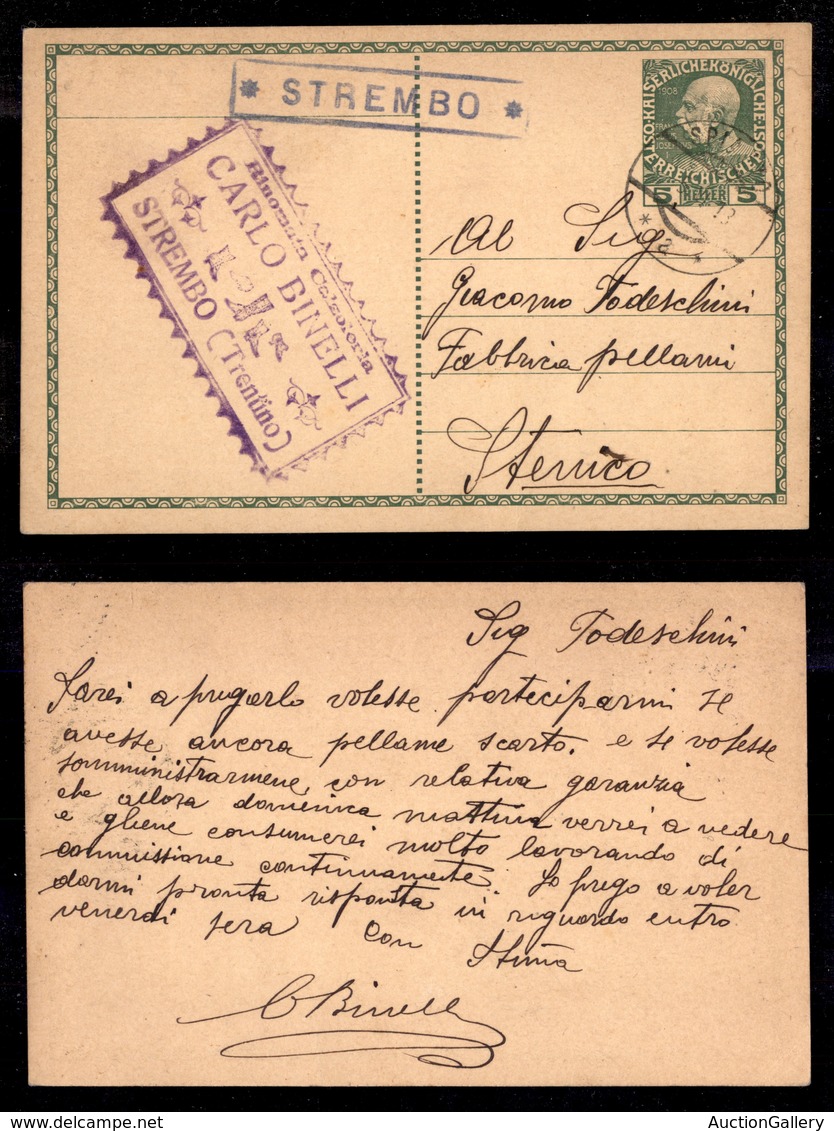 * STREMBO *
Rinomata Calzoleria
CARLO BINELLI
STREMBO (Trentino)
KAISERLICHEKÖNIGLICHE
ÖSTERREICHISCHE POST
1908
5 HELLER 5
13
* a *
Al Sig
Giacomo Todeschini
Fabbrica pellami
Stenico
Sig Todeschini
Sarei a pregarlo volesse parteciparmi se
avesse ancora pellame scarto. e se volesse
somministrarmene con relativa garanzia
che allora domenica mattina verrei a vedere
e gliene consumerei molto lavorando di
commissione continuamente. Lo prego a voler
darmi pronta risposta in riguardo entro
venerdi sera con
Stima
C Binelli
AuctionGallery